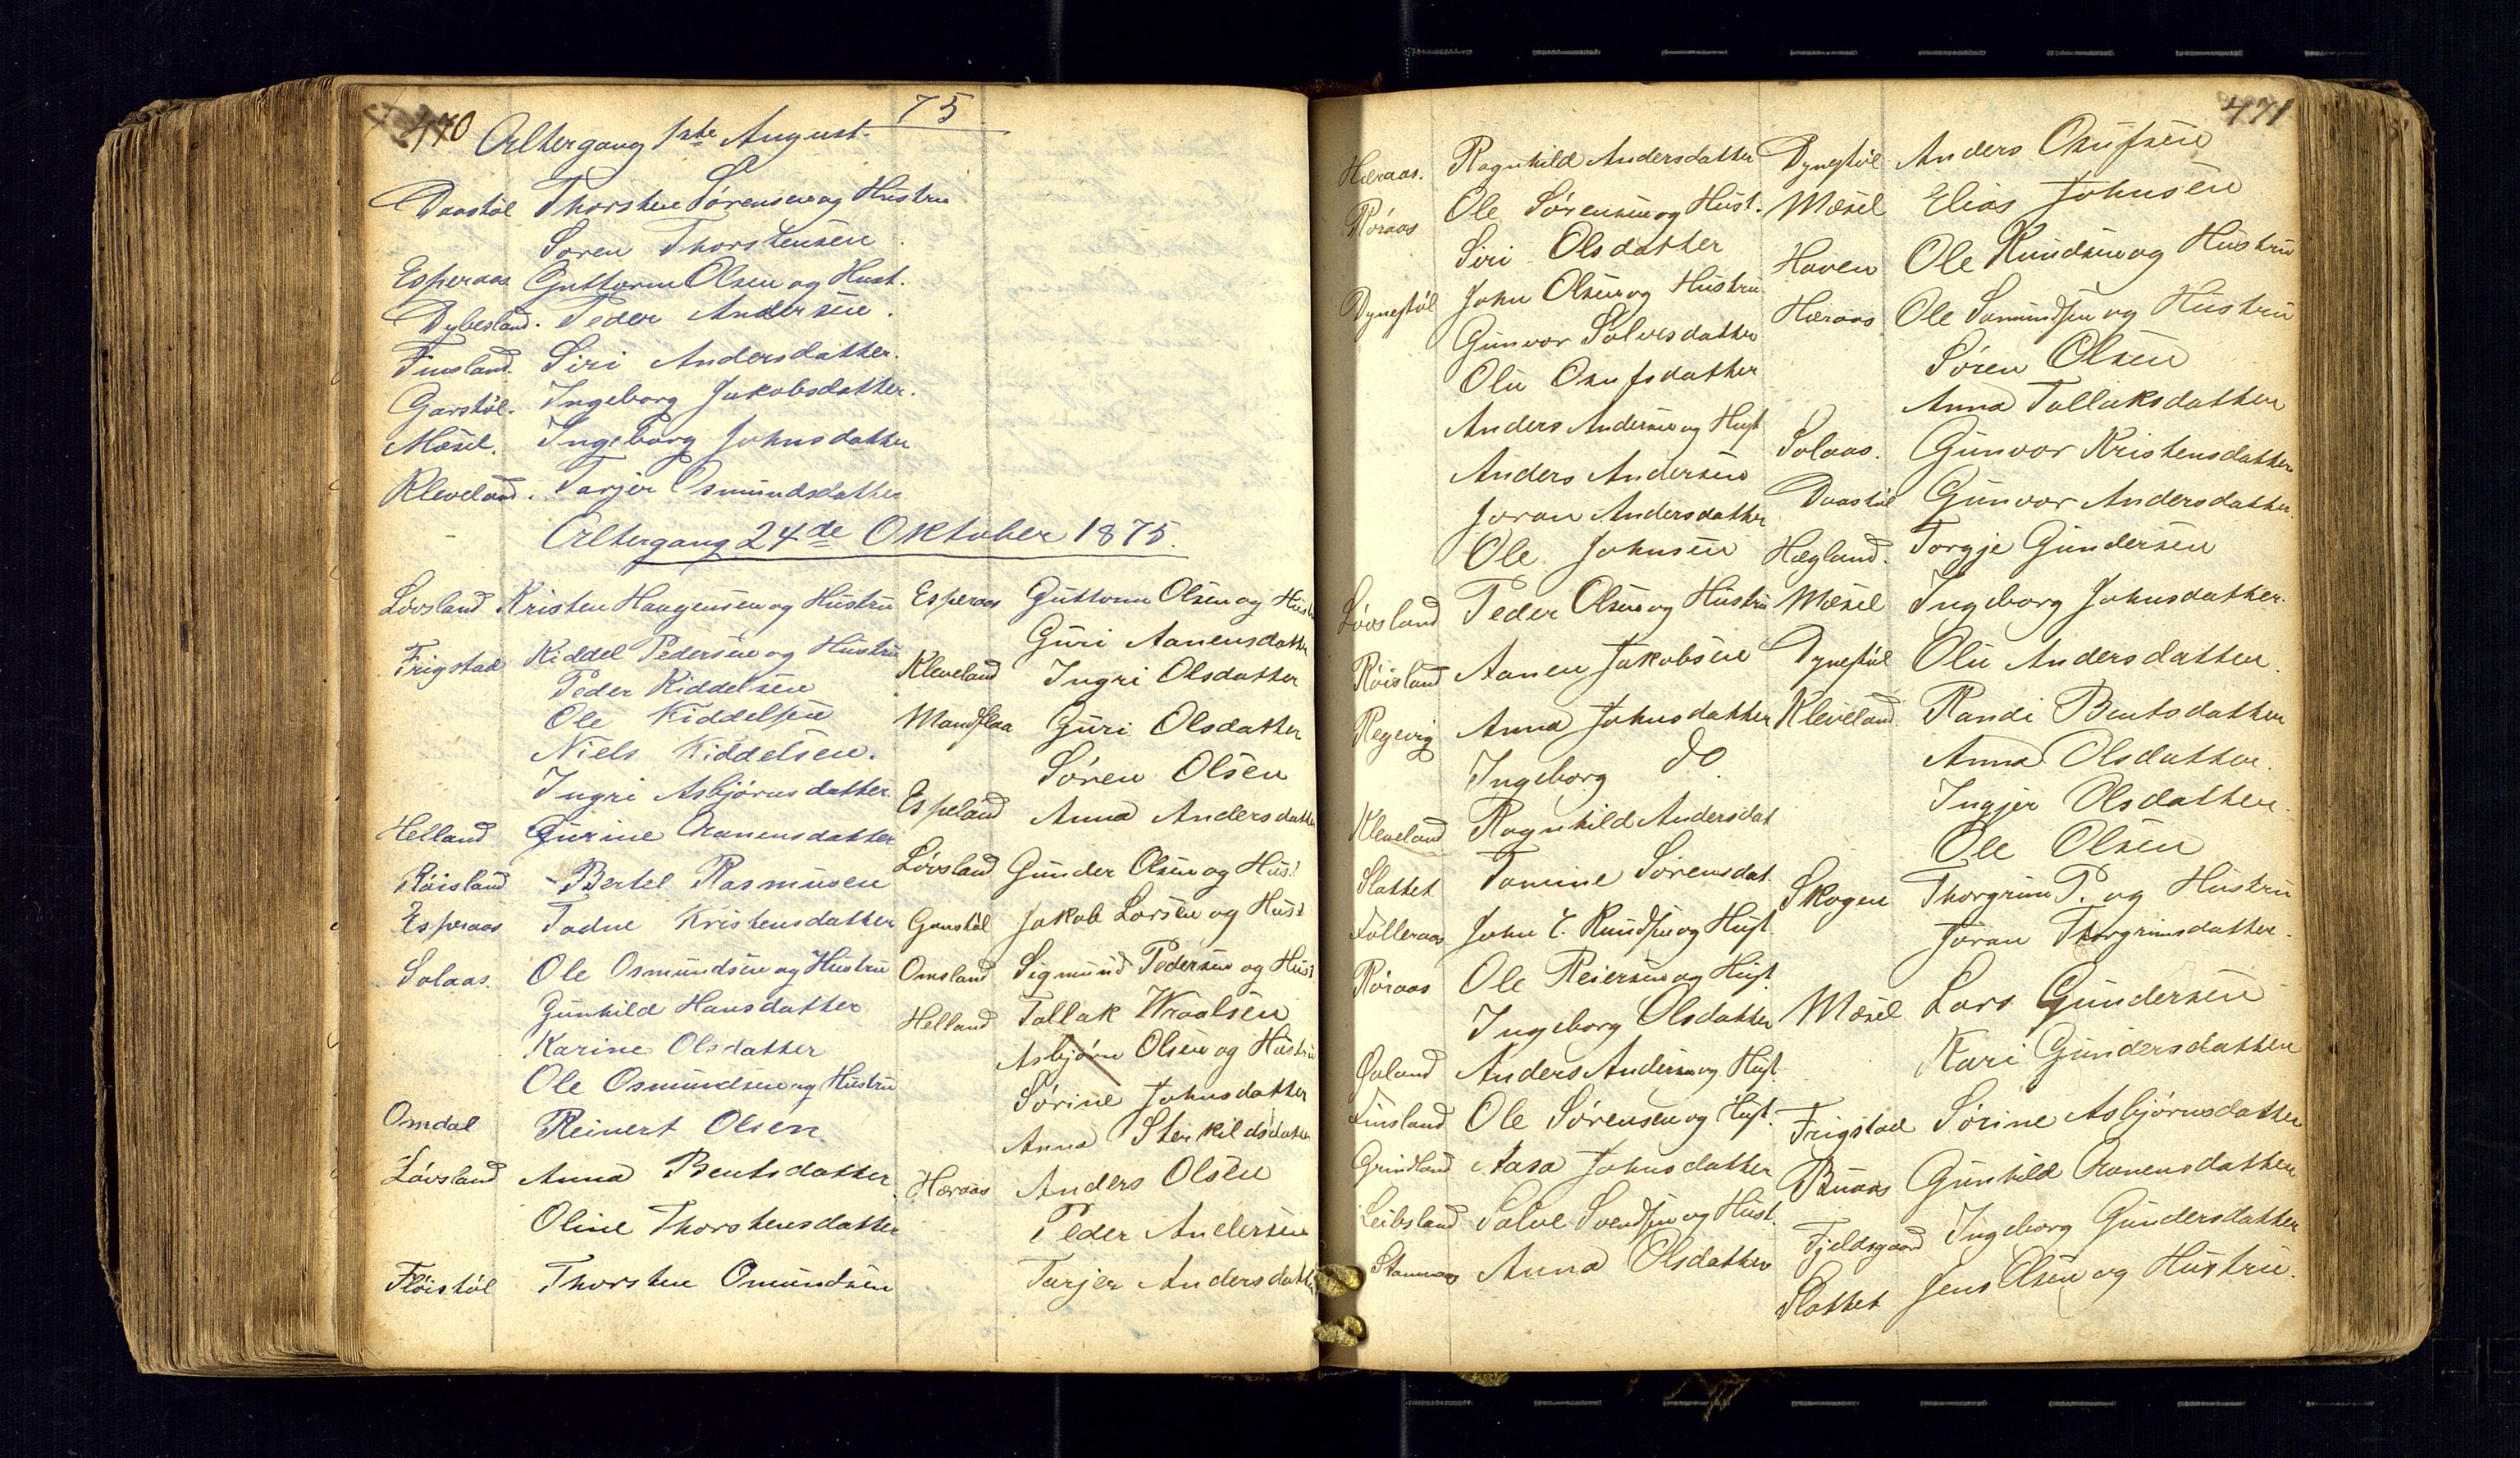 470 Altergang 1ste August. 75
Daastøl Thorsten Sørensen og Hustru
Søren Thorstensen
Esperaas Guttorm Olsen og Hust.
Dybesland. Peder Andersen.
Finsland. Siri Andersdatter.
Garstøl. Ingeborg Jakobsdatter.
Mæsel. Ingeborg Johnsdatter
Kleveland. Tarjer Osmundsdatter
Altergang 24de Oktober 1875.
Løvsland Kristen Haagensen og Hustru
Frigstad Kiddel Pedersen og Hustru
Peder Kiddelsen
Ole Kiddelsen
Niels Kiddelsen.
Ingri Asbjørnsdatter
Helland Gurine Aanensdatter
Røisland Bertel Rasmusen
Esperaas Tadne Kristensdatter
Solaas. Ole Osmundsen og Hustru
Gunhild Hansdatter
Karine Olsdatter
Ole Osmundsen og Hustru
Omdal Reinert Olsen
Løvsland Anna Bentsdatter
Oline Thorstensdatter
Fløistøl Thorsten Omundsen
Esperaas Guttorm Olsen og Hustru
Guri Aanensdatter
Kleveland Ingri Olsdatter
Mandflaa Guri Olsdatter
Søren Olsen
Espeland Anna Andersdatter
Løvsland Gunder Olsen og Hust
Garstøl Jakob Larsen og Hust
Omsland Sigmund Pedersen og Hust
Helland Tallak Wraalsen
Asbjørn Olsen og Hustru
Sørine Johnsdatter
Anna Sterkildsdatter
Hæraas Anders Olsen
Peder Andersen
Tarjer Andersdatter
471
Hæraas. Ragnhild Andersdatter
Røraas Ole Sørensen og Hust.
Siri Olsdatter
Dynestøl John Olsen og Hustru
Gunvor Salvesdatter
Olu Onufsdatter
Anders Andersen og Hust
Anders Andersen
Joran Andersdatter
Ole Johnsen
Løvsland Peder Olsen og Hustru
Røisland Aanen Jakobsen
Regevig Anna Johnsdatter
Ingeborg do.
Kleveland Ragnhild Andersdat
Slattet Tomine Sørensdat.
Tolleraas John T. Knudsen og Hust.
Røraas Ole Reiersen og Hust.
Ingeborg Olsdatter
Øvland Anders Andersen og Hust.
Finsland Ole Sørensen og Hust.
Grindland Aasa Johnsdatter
Leibsland Salve Svendsen og Hust.
Anna Olsdatter
Dynestøl Anders Onufsen
Mæsel Elias Johnsen
Haven Ole Knudsen og Hustru
Hæraas Ole Samundsen og Hustru
Søren Olsen
Anna Tallaksdatter
Solaas. Gunvor Kristensdatter
Daastøl Gunvor Andersdatter.
Hægland. Torgje Gundersen
Mæsel Ingeborg Johnsdatter.
Dynestøl Olu Andersdatter.
Kleveland. Randi Bentsdatter
Anna Olsdatter.
Ingjer Olsdatter.
Ole Olsen
Skogen Thorgrim P. og Hustru
Joran Thorgrimsdatter.
Mæsel Lars Gundersen
Kari Gundersdatter
Frigstad Sørine Asbjørnsdatter
Buaas Gunhild Aanensdatter
Fjeldsgaard Ingeborg Gundersdatter
Slattet Jens Olsen og Hustru.